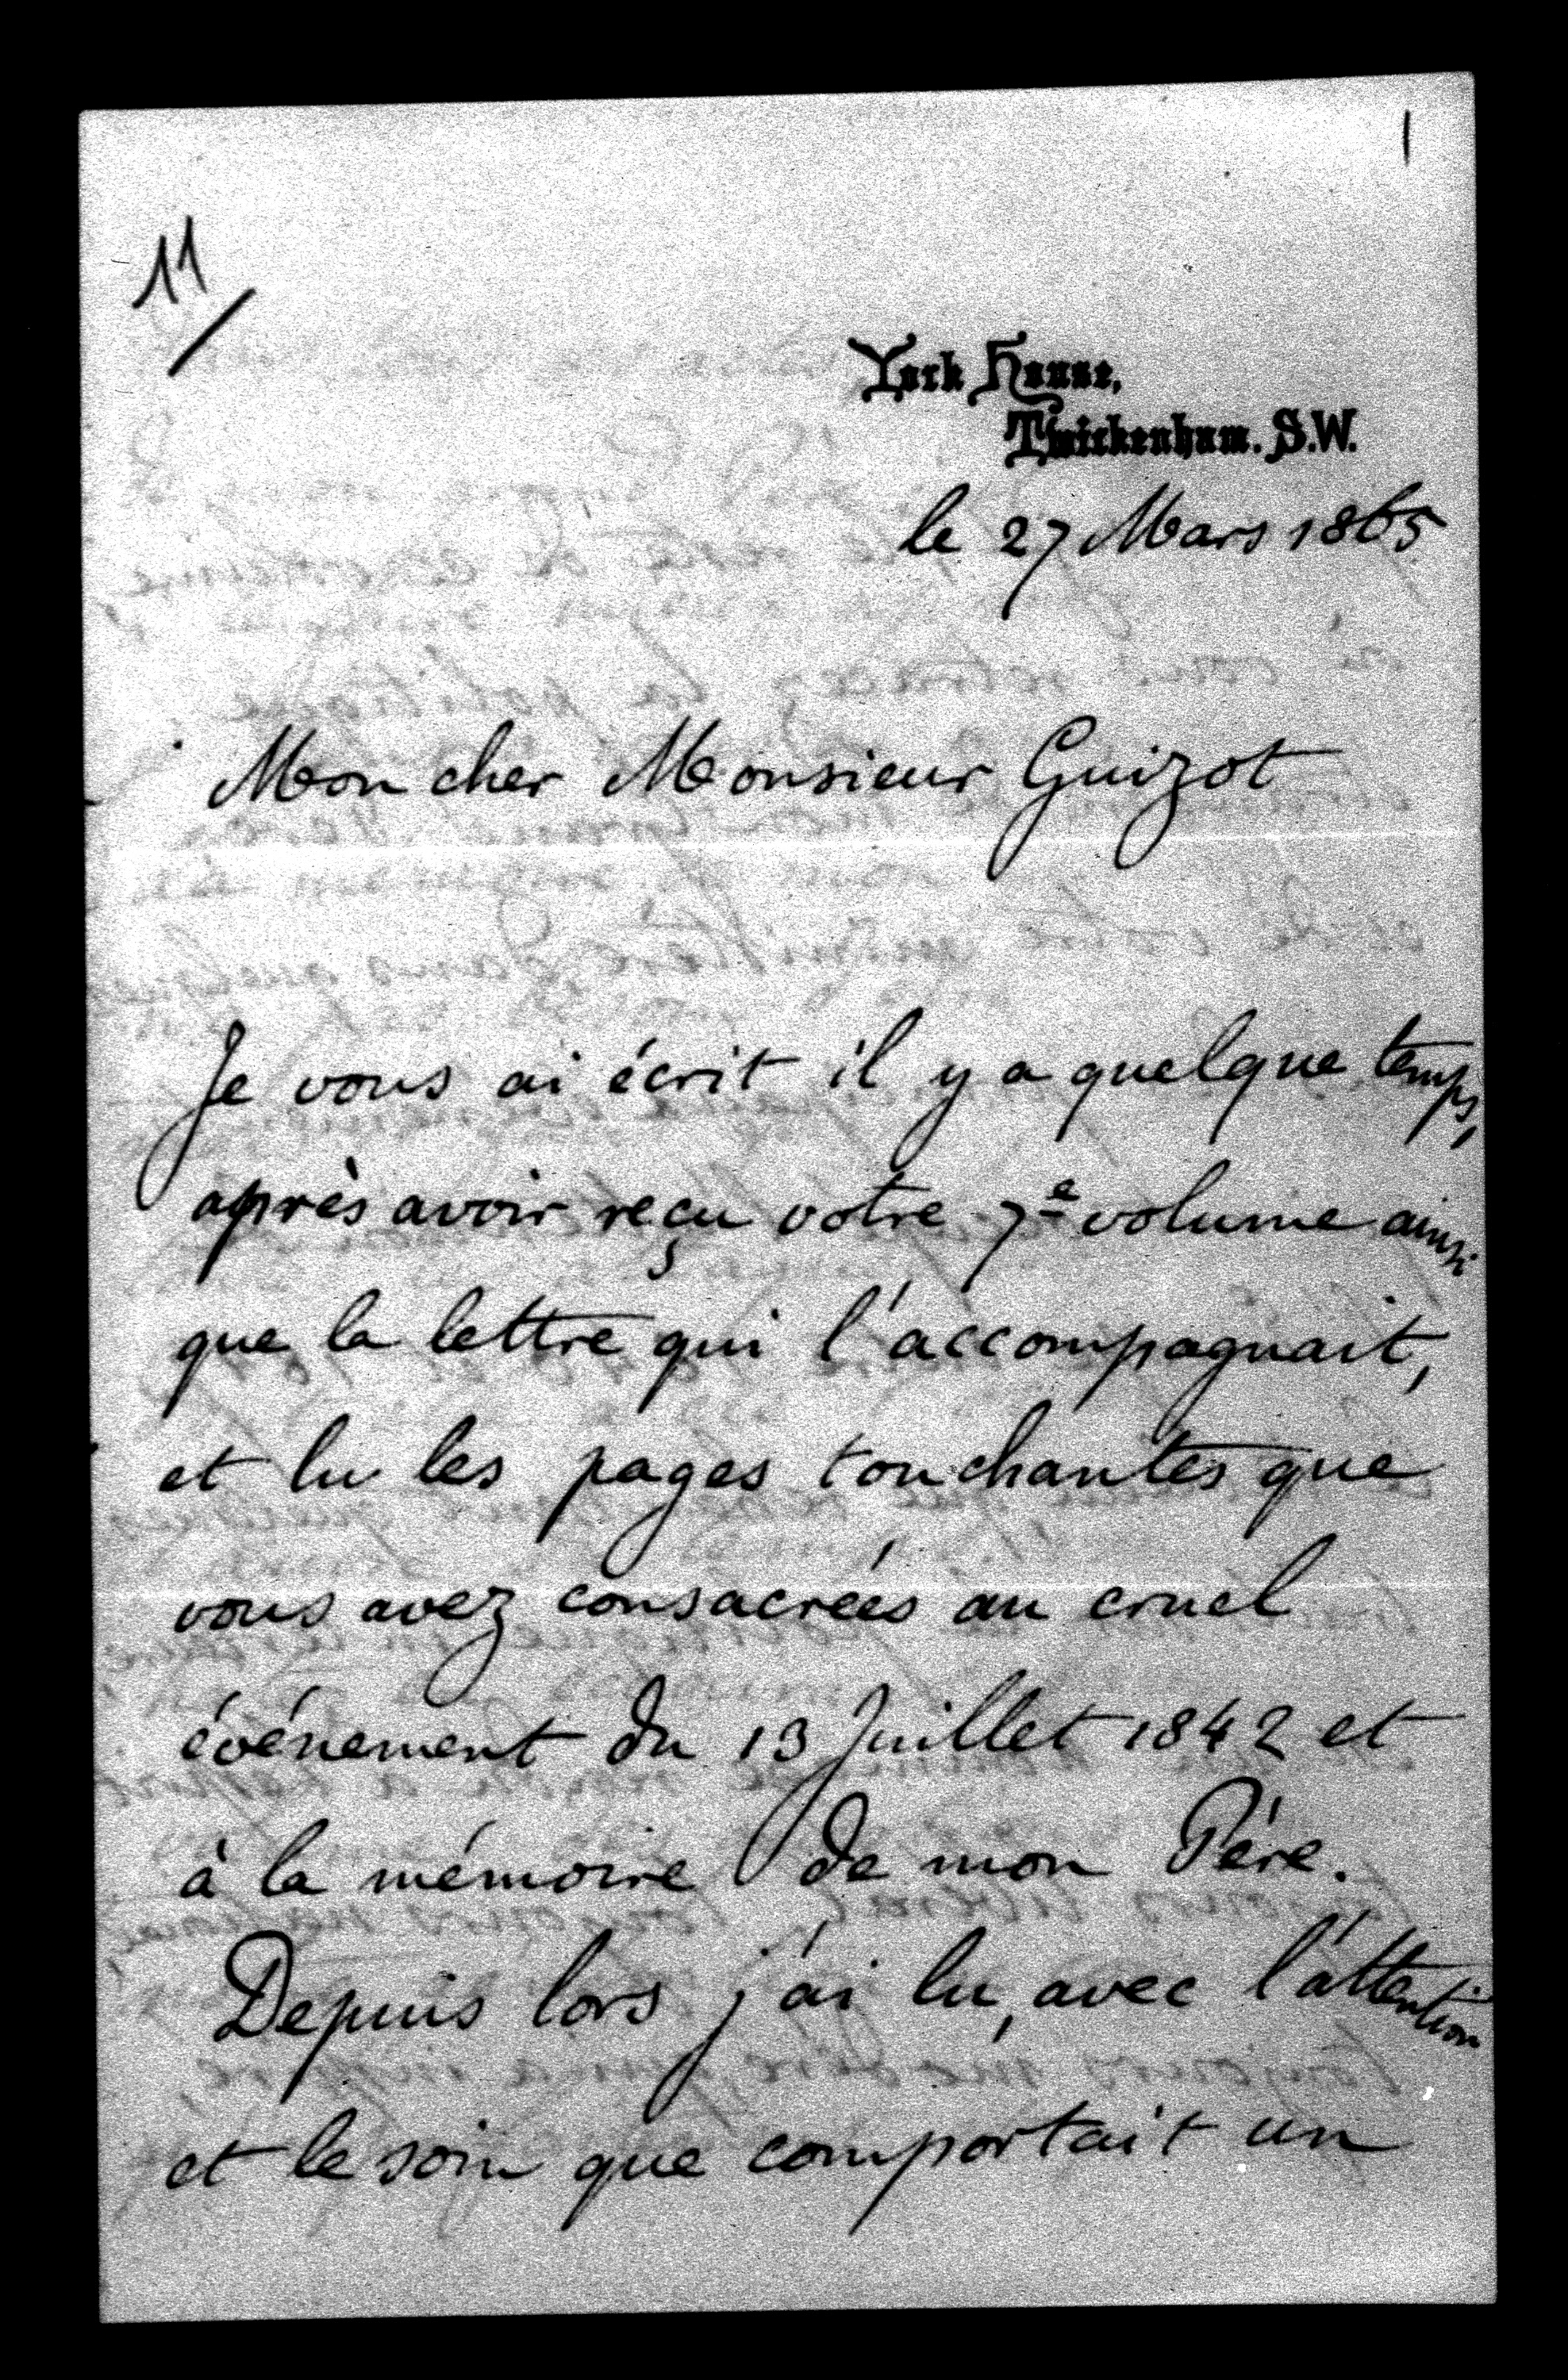 1
11
York House,
Twickenham. S.W.
le 27 Mars 1865
Mon cher Monsieur Guizot
Je vous ai écrit il y a quelque temps,
après avoir reçu votre 7e volume ainsi
que la lettre qui l'accompagnait,
et lu les pages touchantes que
vous avez consacrées au cruel
événement du 13 Juillet 1842 et
à la mémoire de mon Père.
Depuis lors j'ai lu, avec l'attention
et le soin que comportait un